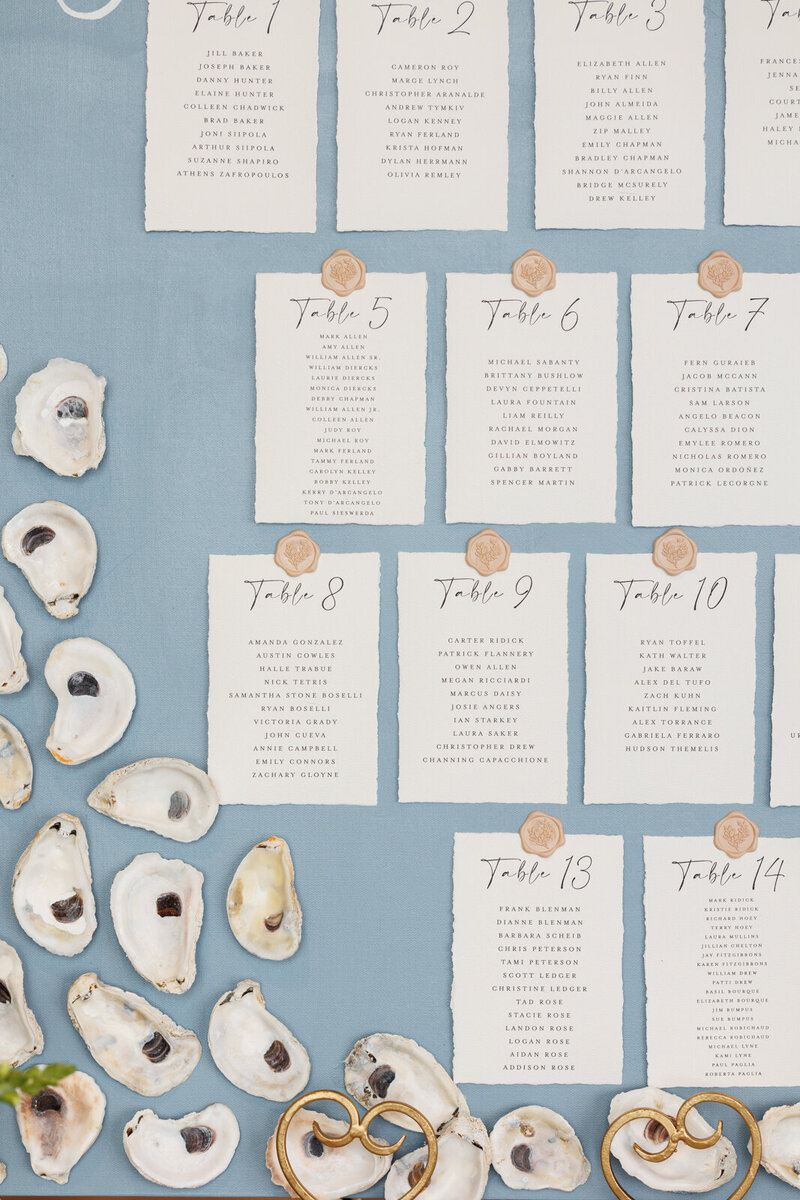 Table 1
JILL BAKER
JOSEPH BAKER
DANNY HUNTER
ELAINE HUNTER
COLLEEN CHADWICK
BRAD BAKER
JONI SIIPOLA
ARTHUR SIIPOLA
SUZANNE SHAPIRO
ATHENS ZAFROPOULOS
Table 2
CAMERON ROY
MARGE LYNCH
CHRISTOPHER ARANALDE
ANDREW TYMKIV
LOGAN KENNEY
RYAN FERLAND
KRISTA HOFMAN
DYLAN HERRMANN
OLIVIA REMLEY
Table 3
ELIZABETH ALLEN
RYAN FINN
BILLY ALLEN
JOHN ALMEIDA
MAGGIE ALLEN
ZIP MALLEY
EMILY CHAPMAN
BRADLEY CHAPMAN
SHANNON D'ARCANGELO
BRIDGE MCSURELY
DREW KELLEY
HALEY
Table 5
MARK ALLEN
AMY ALLEN
WILLIAM ALLEN SR.
WILLIAM DIERCKS
LAURIE DIERCKS
MONICA DIERCKS
DEBBY CHAPMAN
WILLIAM ALLEN JR.
COLLEEN ALLEN
JUDY ROY
MICHAEL ROY
MARK FERLAND
TAMMY FERLAND
CAROLYN KELLEY
BOBBY KELLEY
KERRY D'ARCANGELO
TONY D'ARCANGELO
PAUL SIESWERDA
Table 6
MICHAEL SABANTY
BRITTANY BUSHLOW
DEVYN CEPPETELLI
LAURA FOUNTAIN
LIAM REILLY
RACHAEL MORGAN
DAVID ELMOWITZ
GILLIAN BOYLAND
GABBY BARRETT
SPENCER MARTIN
Table 7
FERN GURAIEB
JACOB MCCANN
CRISTINA BATISTA
SAM LARSON
ANGELO BEACON
CALYSSA DION
EMYLEE ROMERO
NICHOLAS ROMERO
MONICA ORDOÑEZ
PATRICK LECORGNE
Table 8
AMANDA GONZALEZ
AUSTIN COWLES
HALLE TRABUE
NICK TETRIS
SAMANTHA STONE BOSELLI
RYAN BOSELLI
VICTORIA GRADY
JOHN CUEVA
ANNIE CAMPBELL
EMILY CONNORS
ZACHARY GLOYNE
Table 9
CARTER RIDICK
PATRICK FLANNERY
OWEN ALLEN
MEGAN RICCIARDI
MARCUS DAISY
JOSIE ANGERS
IAN STARKEY
LAURA SAKER
CHRISTOPHER DREW
CHANNING CAPACCHIONE
Table 10
RYAN TOFFEL
KATH WALTER
JAKE BARAW
ALEX DEL TUFO
ZACH KUHN
KAITLIN FLEMING
ALEX TORRANCE
GABRIELA FERRARO
HUDSON THEMELIS
Table 13
FRANK BLENMAN
DIANNE BLENMAN
BARBARA SCHEIB
CHRIS PETERSON
TAMI PETERSON
SCOTT LEDGER
CHRISTINE LEDGER
TAD ROSE
STACIE ROSE
LANDON ROSE
LOGAN ROSE
AIDAN ROSE
ADDISON ROSE
Table 14
MARK RIDICK
KRISTIE RIDICK
RICHARD HOEY
TERRY HOEY
LAURA MULLINS
JILLIAN CHELTON
JAY FITZGIBBONS
KAREN FITZGIBBONS
WILLIAM DREW
PATTI DREW
BASIL BOURQUE
ELIZABETH BOURQUE
JIM BUMPUS
SUE BUMPUS
MICHAEL ROBICHAUD
REBECCA ROBICHAUD
MICHAEL LYNE
KAMI LYNE
PAUL PAGLIA
ROBERTA PAGLIA